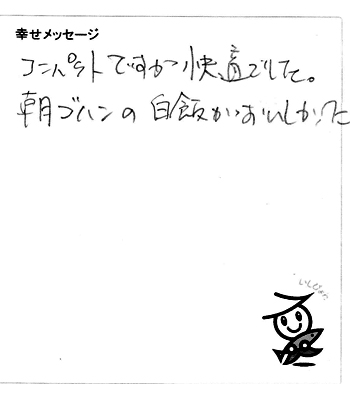 幸せメッセージ
コンパクトですが快適でした。
朝ゴハンの白飯がおいしかった